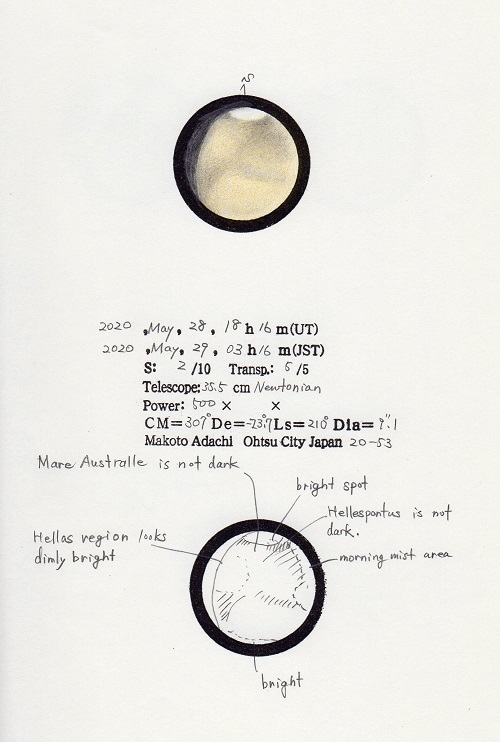 S
2020 , May , 28 , 18 h 16 m(UT)
2020 , May , 29 , 03 h 16 m(JST)
S: 2 /10 Transp.: 5 /5
Telescope: 35.5 cm Newtonian
Power: 500 × ×
CM= 307° De= -23.7 Ls= 210° Dia= 9".1
Makoto Adachi Ohtsu City Japan 20-53
Mare Australle is not dark
bright spot
Hellespontus is not
dark.
Hellas region looks
dimly bright
morning mist area
bright